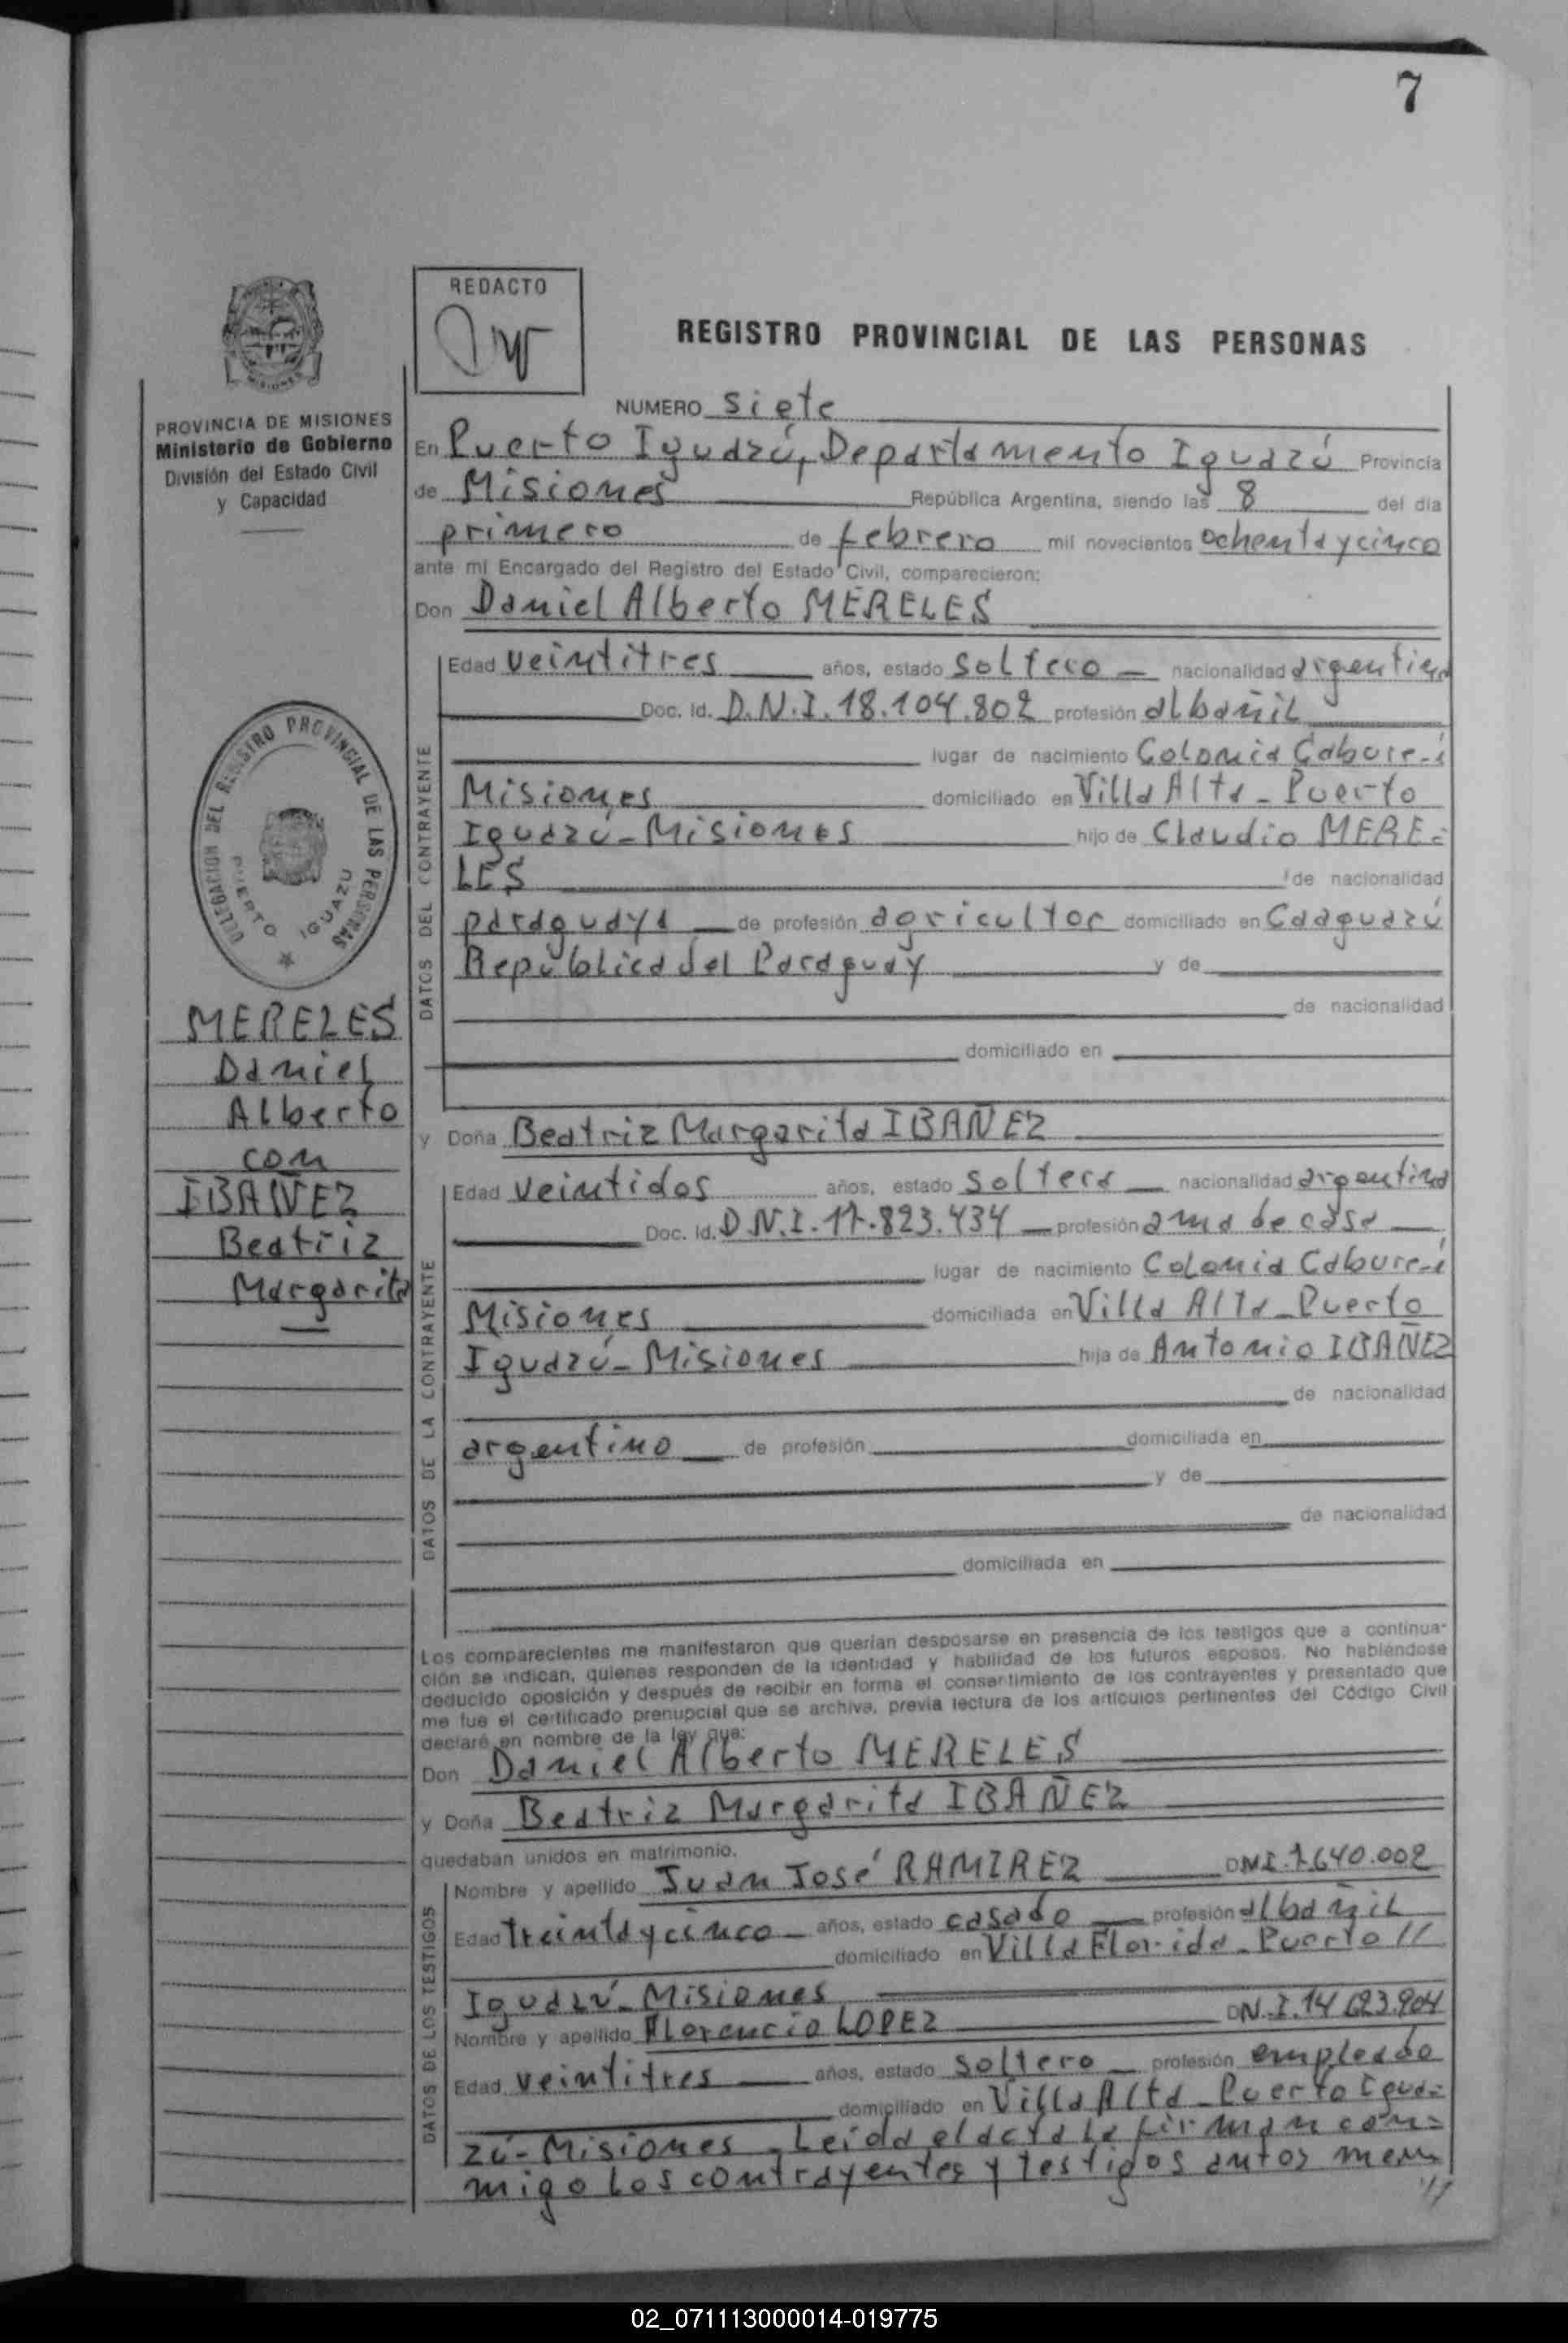 7
REDACTO
REGISTRO PROVINCIAL DE LAS PERSONAS
MISIONES
PROVINCIA DE MISIONES
Ministerio de Gobierno
División del Estado Civil
y Capacidad
NUMERO Siete
En Puerto Iguazú, Departamento Iguazú Provincia
de Misiones República Argentina, siendo las 8 del día
primero de febrero mil novecientos ochenta y cinco
ante mi Encargado del Registro del Estado Civil, comparecieron:
Don Daniel Alberto MERELES
DATOS DEL CONTRAYENTE
Edad veintitres años, estado soltero nacionalidad argentina
Doc. Id. D.N.I. 18.104.802 profesión albañil
lugar de nacimiento Colonia Caburei
Misiones domiciliado en Villa Alta - Puerto
Iguazú - Misiones hijo de Claudio MERE=
LES de nacionalidad
paraguaya de profesión agricultor domiciliado en Caaguazú
República del Paraguay y de
de nacionalidad
domiciliado en
DELEGACION DEL REGISTRO PROVINCIAL DE LAS PERSONAS
PUERTO IGUAZU
MERELES
Daniel
Alberto
con
IBAÑEZ
Beatriz
Margarita
y Doña Beatriz Margarita IBAÑEZ
DATOS DE LA CONTRAYENTE
Edad veintidos años, estado soltera nacionalidad argentina
Doc. Id. D.N.I. 17.823.434 profesión ama de casa
lugar de nacimiento Colonia Caburei
Misiones domiciliada en Villa Alta - Puerto
Iguazú - Misiones hija de Antonio IBAÑEZ
de nacionalidad
argentino de profesión domiciliada en
y de
de nacionalidad
domiciliada en
Los comparecientes me manifestaron que querían desposarse en presencia de los testigos que a continua-
ción se indican, quienes responden de la identidad y habilidad de los futuros esposos. No habiéndose
deducido oposición y después de recibir en forma el consentimiento de los contrayentes y presentado que
me fue el certificado prenupcial que se archiva, previa lectura de los artículos pertinentes del Código Civil
declaré en nombre de la ley que:
Don Daniel Alberto MERELES
y Doña Beatriz Margarita IBAÑEZ
quedaban unidos en matrimonio.
DATOS DE LOS TESTIGOS
Nombre y apellido Juan José RAMIREZ DNI. 7.640.002
Edad treinta y cinco años, estado casado profesión albañil
domiciliado en Villa Florida - Puerto //
Iguazú - Misiones
Nombre y apellido Florencio LOPEZ DN.I. 14.623.904
Edad veintitres años, estado soltero profesión empleado
domiciliado en Villa Alta - Puerto Igua=
zú - Misiones - Leida el acta la firman con=
migo los contrayentes y testigos antos men
//
02_071113000014-019775